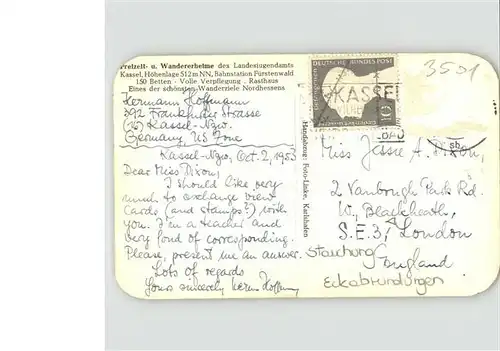 Freizeit- u. Wandererheime des Landesjugendamts
Kassel, Höhenlage 512 m NN, Bahnstation Fürstenwald
150 Betten - Volle Verpflegung . Rasthaus
Eines der schönsten Wanderziele Nordhessens
Hermann Hoffmann
392 Frankfurter Strasse
(16) Kassel-Nzw.
Germany, US Zone
Kassel-Nzw, Oct. 2, 1953
Dear Miss Dixon,
I should like very
much to exchange view
cards (and stamps?) with
you. I'm a teacher and
very fond of corresponding.
Please, present me an answer.
Lots of regards
Yours sincerely Herm. Hoffmann
Handabzug: Foto-Linke, Karlshafen
DEUTSCHE BUNDESPOST
10
KASSEL
3501
Miss Jessie A. Dixon,
2 Vanbrugh Park Rd.
W., Blackheath,
S.E.3, London
England
Stauchung
Eckabrundungen
sb.